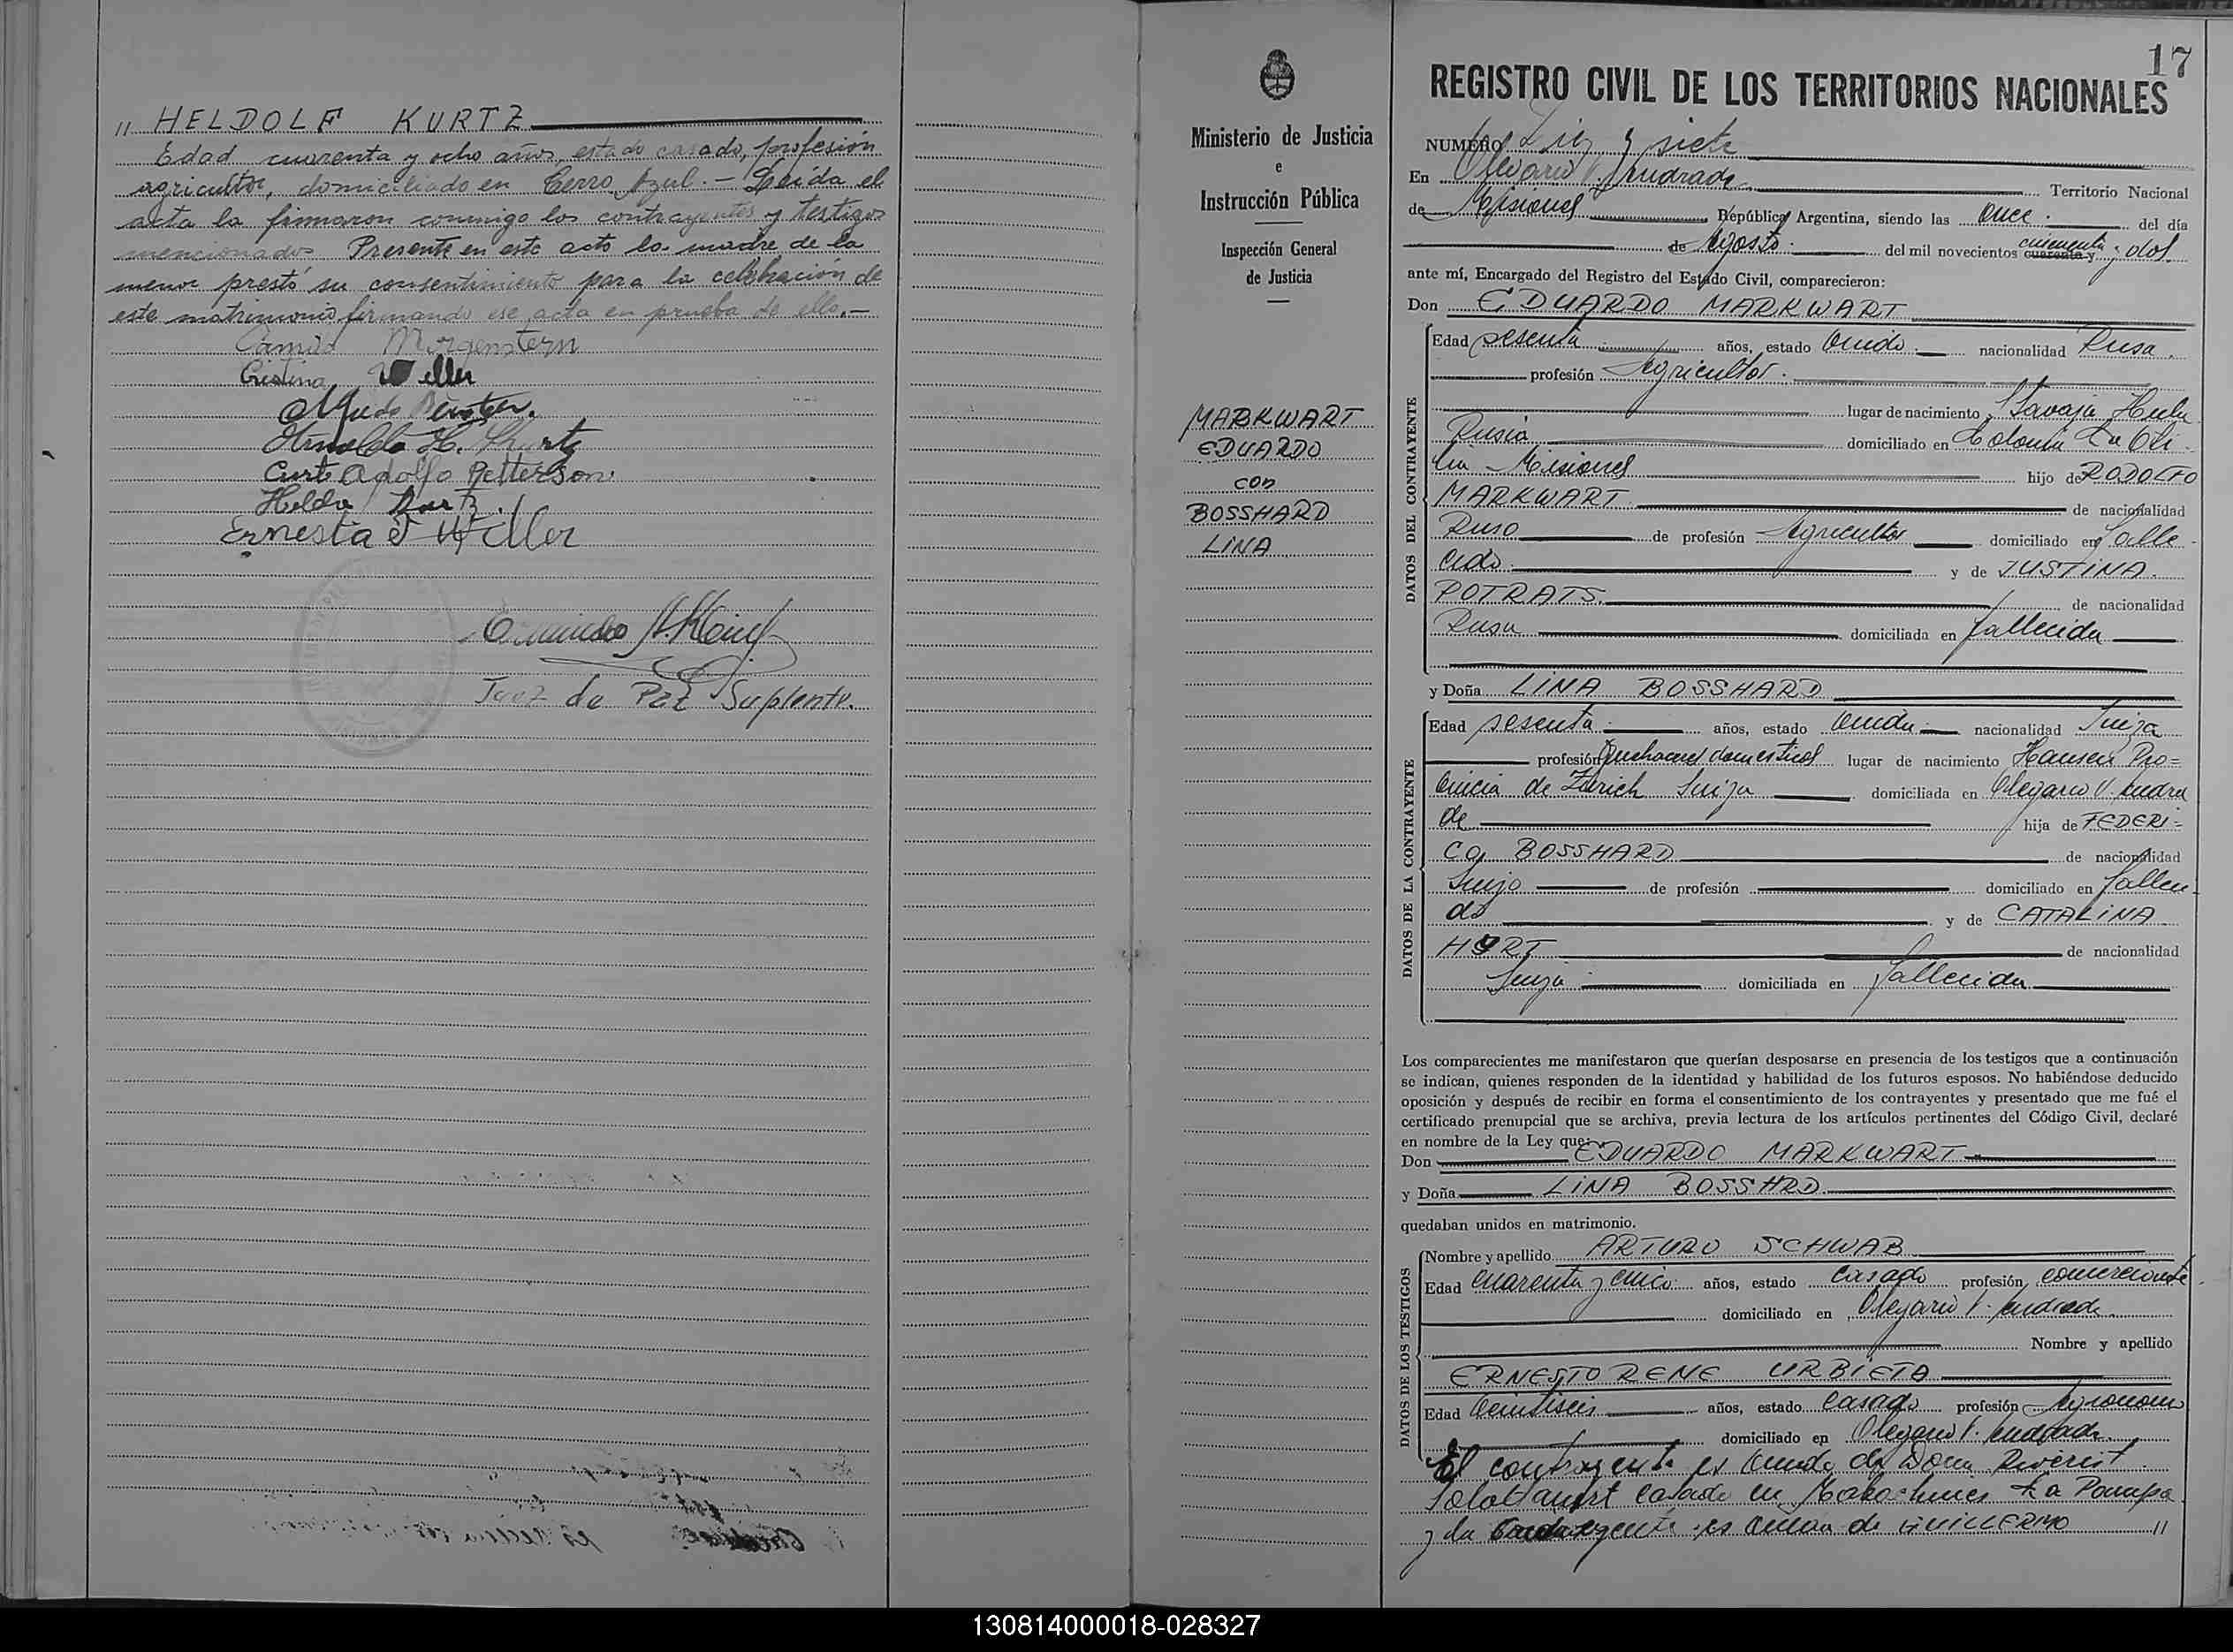 " HELDOLF KURTZ
Edad cuarenta y ocho años, estado casado, profesión
agricultor, domiciliado en Cerro Azul.- Leída el
acta la firmaron conmigo los contrayentes y testigos
mencionados Presente en este acto la madre de la
menor prestó su consentimiento para la celebración de
este matrimonio firmando ese acta en prueba de ello.-
Camilo Morgenstern
Cristina Weller
Arnoldo H. Kurtz
Curt Adolfo Petterson
Heldo Kurtz
Ernesta
Juez de Paz Suplente.
Ministerio de Justicia
e
Instrucción Pública
Inspección General
de Justicia
MARKWART
EDUARDO
con
BOSSHARD
LINA
17
REGISTRO CIVIL DE LOS TERRITORIOS NACIONALES
NUMERO Diez y siete
En Olegario V. Andrade Territorio Nacional
de Misiones República Argentina, siendo las once del día
de Agosto del mil novecientos cuarenta y cincuenta y dos.
ante mí, Encargado del Registro del Estado Civil, comparecieron:
Don EDUARDO MARKWART
DATOS DEL CONTRAYENTE
Edad sesenta años, estado viudo nacionalidad Rusa.
profesión Agricultor.
lugar de nacimiento
Rusia domiciliado en Colonia
Misiones hijo de RODOLFO
MARKWART de nacionalidad
Ruso de profesión Agricultor domiciliado en falle
cido y de JUSTINA
POTRATS de nacionalidad
Rusa domiciliada en fallecida
y Doña LINA BOSSHARD
DATOS DE LA CONTRAYENTE
Edad sesenta años, estado viuda nacionalidad Suiza
profesión Quehaceres domesticos lugar de nacimiento Hausen Pro=
vincia de Zürich Suiza domiciliada en Olegario V. Andra
de hija de FEDERI=
CO BOSSHARD de nacionalidad
Suizo de profesión domiciliado en falleci
do y de CATALINA
de nacionalidad
Suiza domiciliada en fallecida
Los comparecientes me manifestaron que querían desposarse en presencia de los testigos que a continuación
se indican, quienes responden de la identidad y habilidad de los futuros esposos. No habiéndose deducido
oposición y después de recibir en forma el consentimiento de los contrayentes y presentado que me fué el
certificado prenupcial que se archiva, previa lectura de los artículos pertinentes del Código Civil, declaré
en nombre de la Ley que:
Don EDUARDO MARKWART
y Doña LINA BOSSHRD
quedaban unidos en matrimonio.
DATOS DE LOS TESTIGOS
Nombre y apellido ARTURO SCHWAB
Edad cuarenta y cinco años, estado casado profesión comerciante
domiciliado en Olegario V. Andrade
Nombre y apellido
ERNESTO RENE URBIETA
Edad veintiseis años, estado casado profesión Agronomo
domiciliado en Olegario V. Andrade.
El contrayente es viudo de Doña
casado en La Pampa
y la contrayente es viuda de GUILLERMO "
130814000018-028327